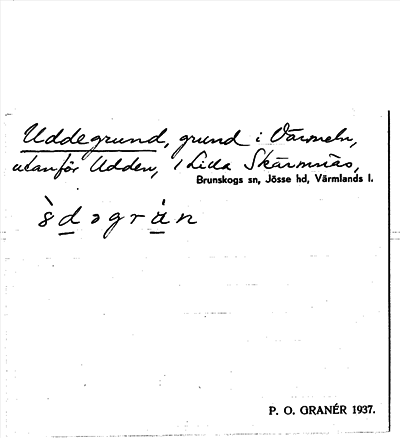 Uddegrund, grund i Värmeln,
utanför Udden, i Lilla Skärmnäs,
Brunskogs sn, Jösse hd, Värmlands l.
P. O. GRANÉR 1937.